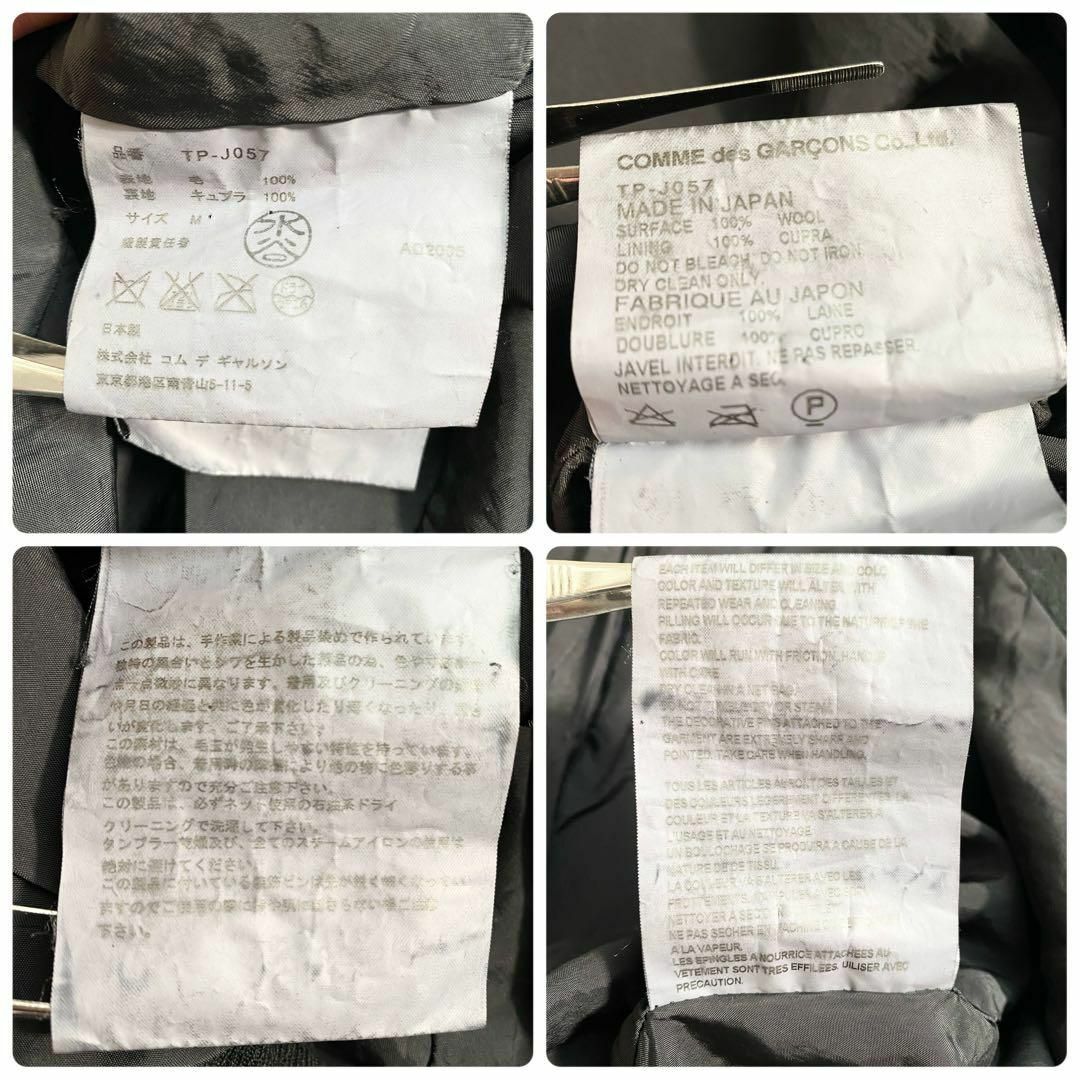 品番 TP-J057
表地 毛 100%
裏地 キュプラ 100%
サイズ M
縫製責任者
水谷
AD2005
ドライ
日本製
株式会社 コム デ ギャルソン
東京都港区南青山5-11-5
COMME des GARÇONS Co.,Ltd.
TP-J057
MADE IN JAPAN
SURFACE 100% WOOL
LINING 100% CUPRA
DO NOT BLEACH, DO NOT IRON
DRY CLEAN ONLY.
FABRIQUE AU JAPON
ENDROIT 100% LAINE
DOUBLURE 100% CUPRO
JAVEL INTERDIT. NE PAS REPASSER.
NETTOYAGE A SEC.
P
この製品は、手作業による製品染めで作られています。
独特の風合いとシワを生かした製品の為、色や寸法が一
点一点微妙に異なります。着用及びクリーニングの
や月日の経過と共に色が変化したり薄くなったり、風合
いが変化します。ご了承下さい。
この素材は、毛玉が発生しやすい特性を持っています。
色物の場合、着用時の摩擦により他の物に色移りする事
がありますので充分ご注意下さい。
この製品は、必ずネット使用の石油系ドライ
クリーニングで洗濯して下さい。
タンブラー乾燥及び、全てのスチームアイロンの使用は
絶対に避けてください。
この製品に付いている装飾ピンは先が鋭く細くなってい
ますのでご使用の際に
下さい。
EACH ITEM WILL DIFFER IN SIZE AND COLO
COLOR AND TEXTURE WILL ALTER WITH
REPEATED WEAR AND CLEANING.
PILLING WILL OCCUR DUE TO THE NATURE OF THE
FABRIC.
COLOR WILL RUN WITH FRICTION, HANDLE
WITH CARE
DRY CLEAN IR A NET BAG.
DO NOT TUMBLE DRY OR STEAM.
THE DECORATIVE PINS ATTACHED TO THE
GARMENT ARE EXTREMELY SHARP AND
POINTED. TAKE CARE WHEN HANDLING.
TOUS LES ARTICLES AURONT DES TAILLES ET
DES COULEURS LEGEREMENT DIFFERENTES. LA
COULEUR ET LA TEXTURE VA S'ALTERER A
L'USAGE ET AU NETTOYAGE.
UN BOULOCHAGE SE PRODUIRA A CAUSE DE LA
NATURE DE CE TISSU.
LA COULEUR VA S'ALTERER AVEC LES
FROTTEMENTS.
NETTOYER A SEC
NE PAS SECHER EN MACHINE
A LA VAPEUR.
LES EPINGLES A NOURRICE ATTACHEES AU
VETEMENT SONT TRES EFFILEES. UILISER AVEC
PRECAUTION.